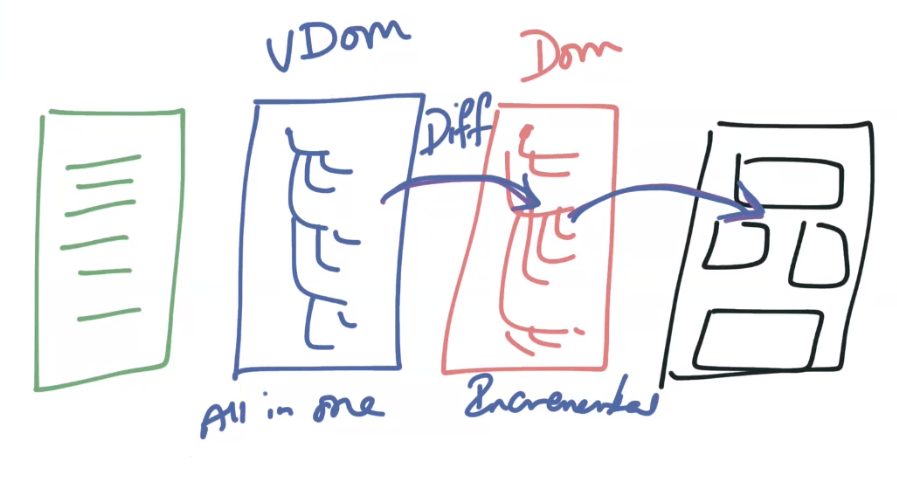 VDom
Dom
Diff
All in one
Incremental